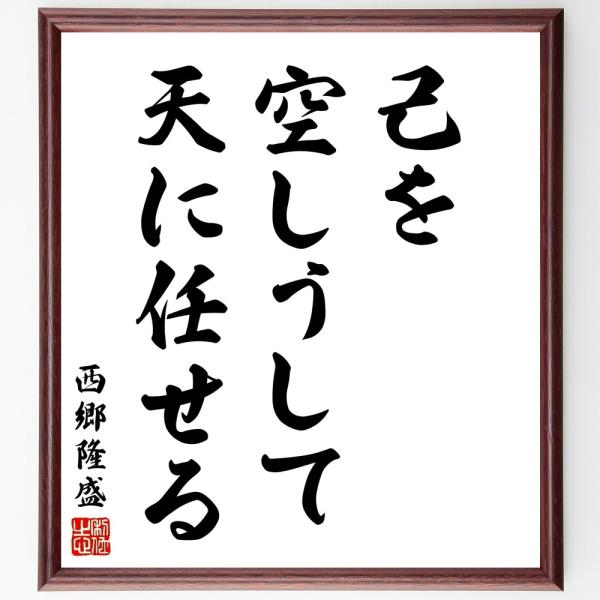 己を
空しうして
天に任せる
西郷隆盛